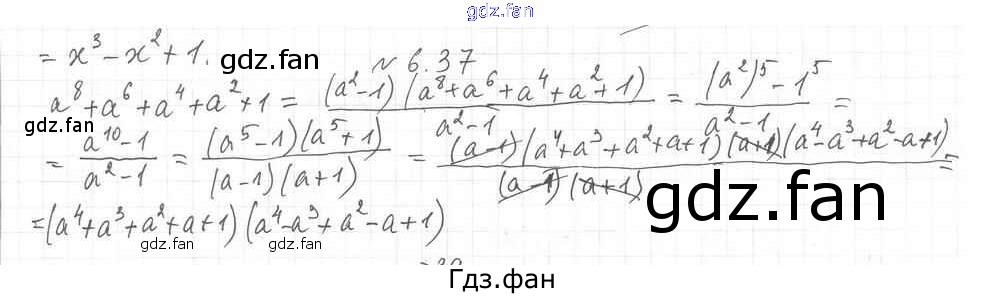 gdz.fan
= x³ - x² + 1.
gdz.fan
N 6.37
a⁸ + a⁶ + a⁴ + a² + 1 = (a² - 1)(a⁸ + a⁶ + a⁴ + a² + 1) / (a² - 1) = ((a²)⁵ - 1⁵) / (a² - 1) =
gdz.fan
= (a¹⁰ - 1) / (a² - 1) = (a⁵ - 1)(a⁵ + 1) / (a - 1)(a + 1) = (a - 1)(a⁴ + a³ + a² + a + 1)(a + 1)(a⁴ - a³ + a² - a + 1) / (a - 1)(a + 1) =
= (a⁴ + a³ + a² + a + 1)(a⁴ - a³ + a² - a + 1)
gdz.fan
gdz.fan
gdz.fan
Гдз.фан